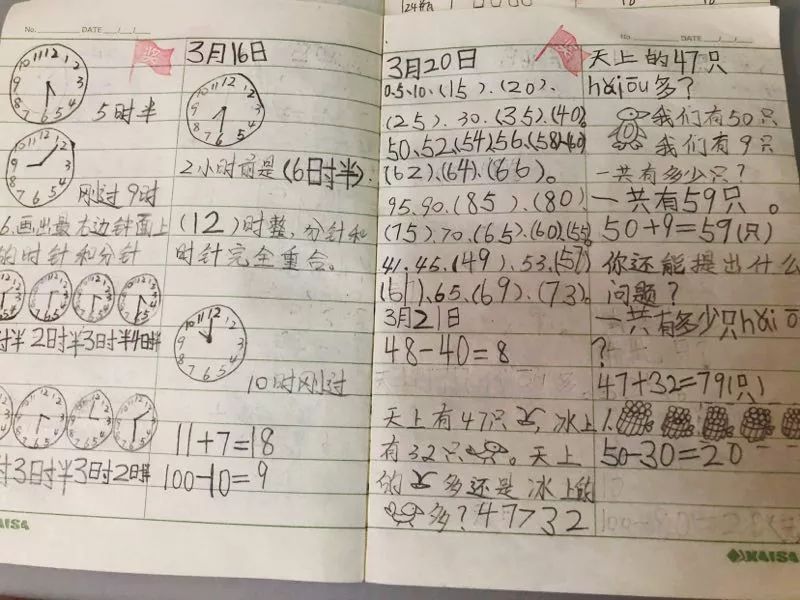 No. DATE / /
奖
5时半
刚过9时
6.画出最右边钟面上
的时针和分针
时半2时半3时半4时半
时3时半3时2时半
3月16日
2小时前是(6时半).
(12)时整,分针和
时针完全重合。
10时刚过
11+7=18
100-10=9
No. DATE / /
奖
3月20日
0.5.10.(15)、(20)、
(25)、30、(35)、(40)
50、52、(54)、56、(58)、(60)
(62)、(64)、(66)。
95、90、(85)、(80)、
(75)、70、(65)、(60)、(55)
41、45、(49)、53、(57)
(61)、65、(69)、(73)、
3月21日
48-40=8
天上有47只,冰上
有32只。天上
的多还是冰上的
多?47>32
天上的47只
hǎiōu多?
我们有50只
我们有9只
一共有多少只?
一共有59只。
50+9=59(只)
你还能提出什么
问题?
一共有多少只hǎi ō
?
47+32=79(只)
1.
50-30=20
KAISA